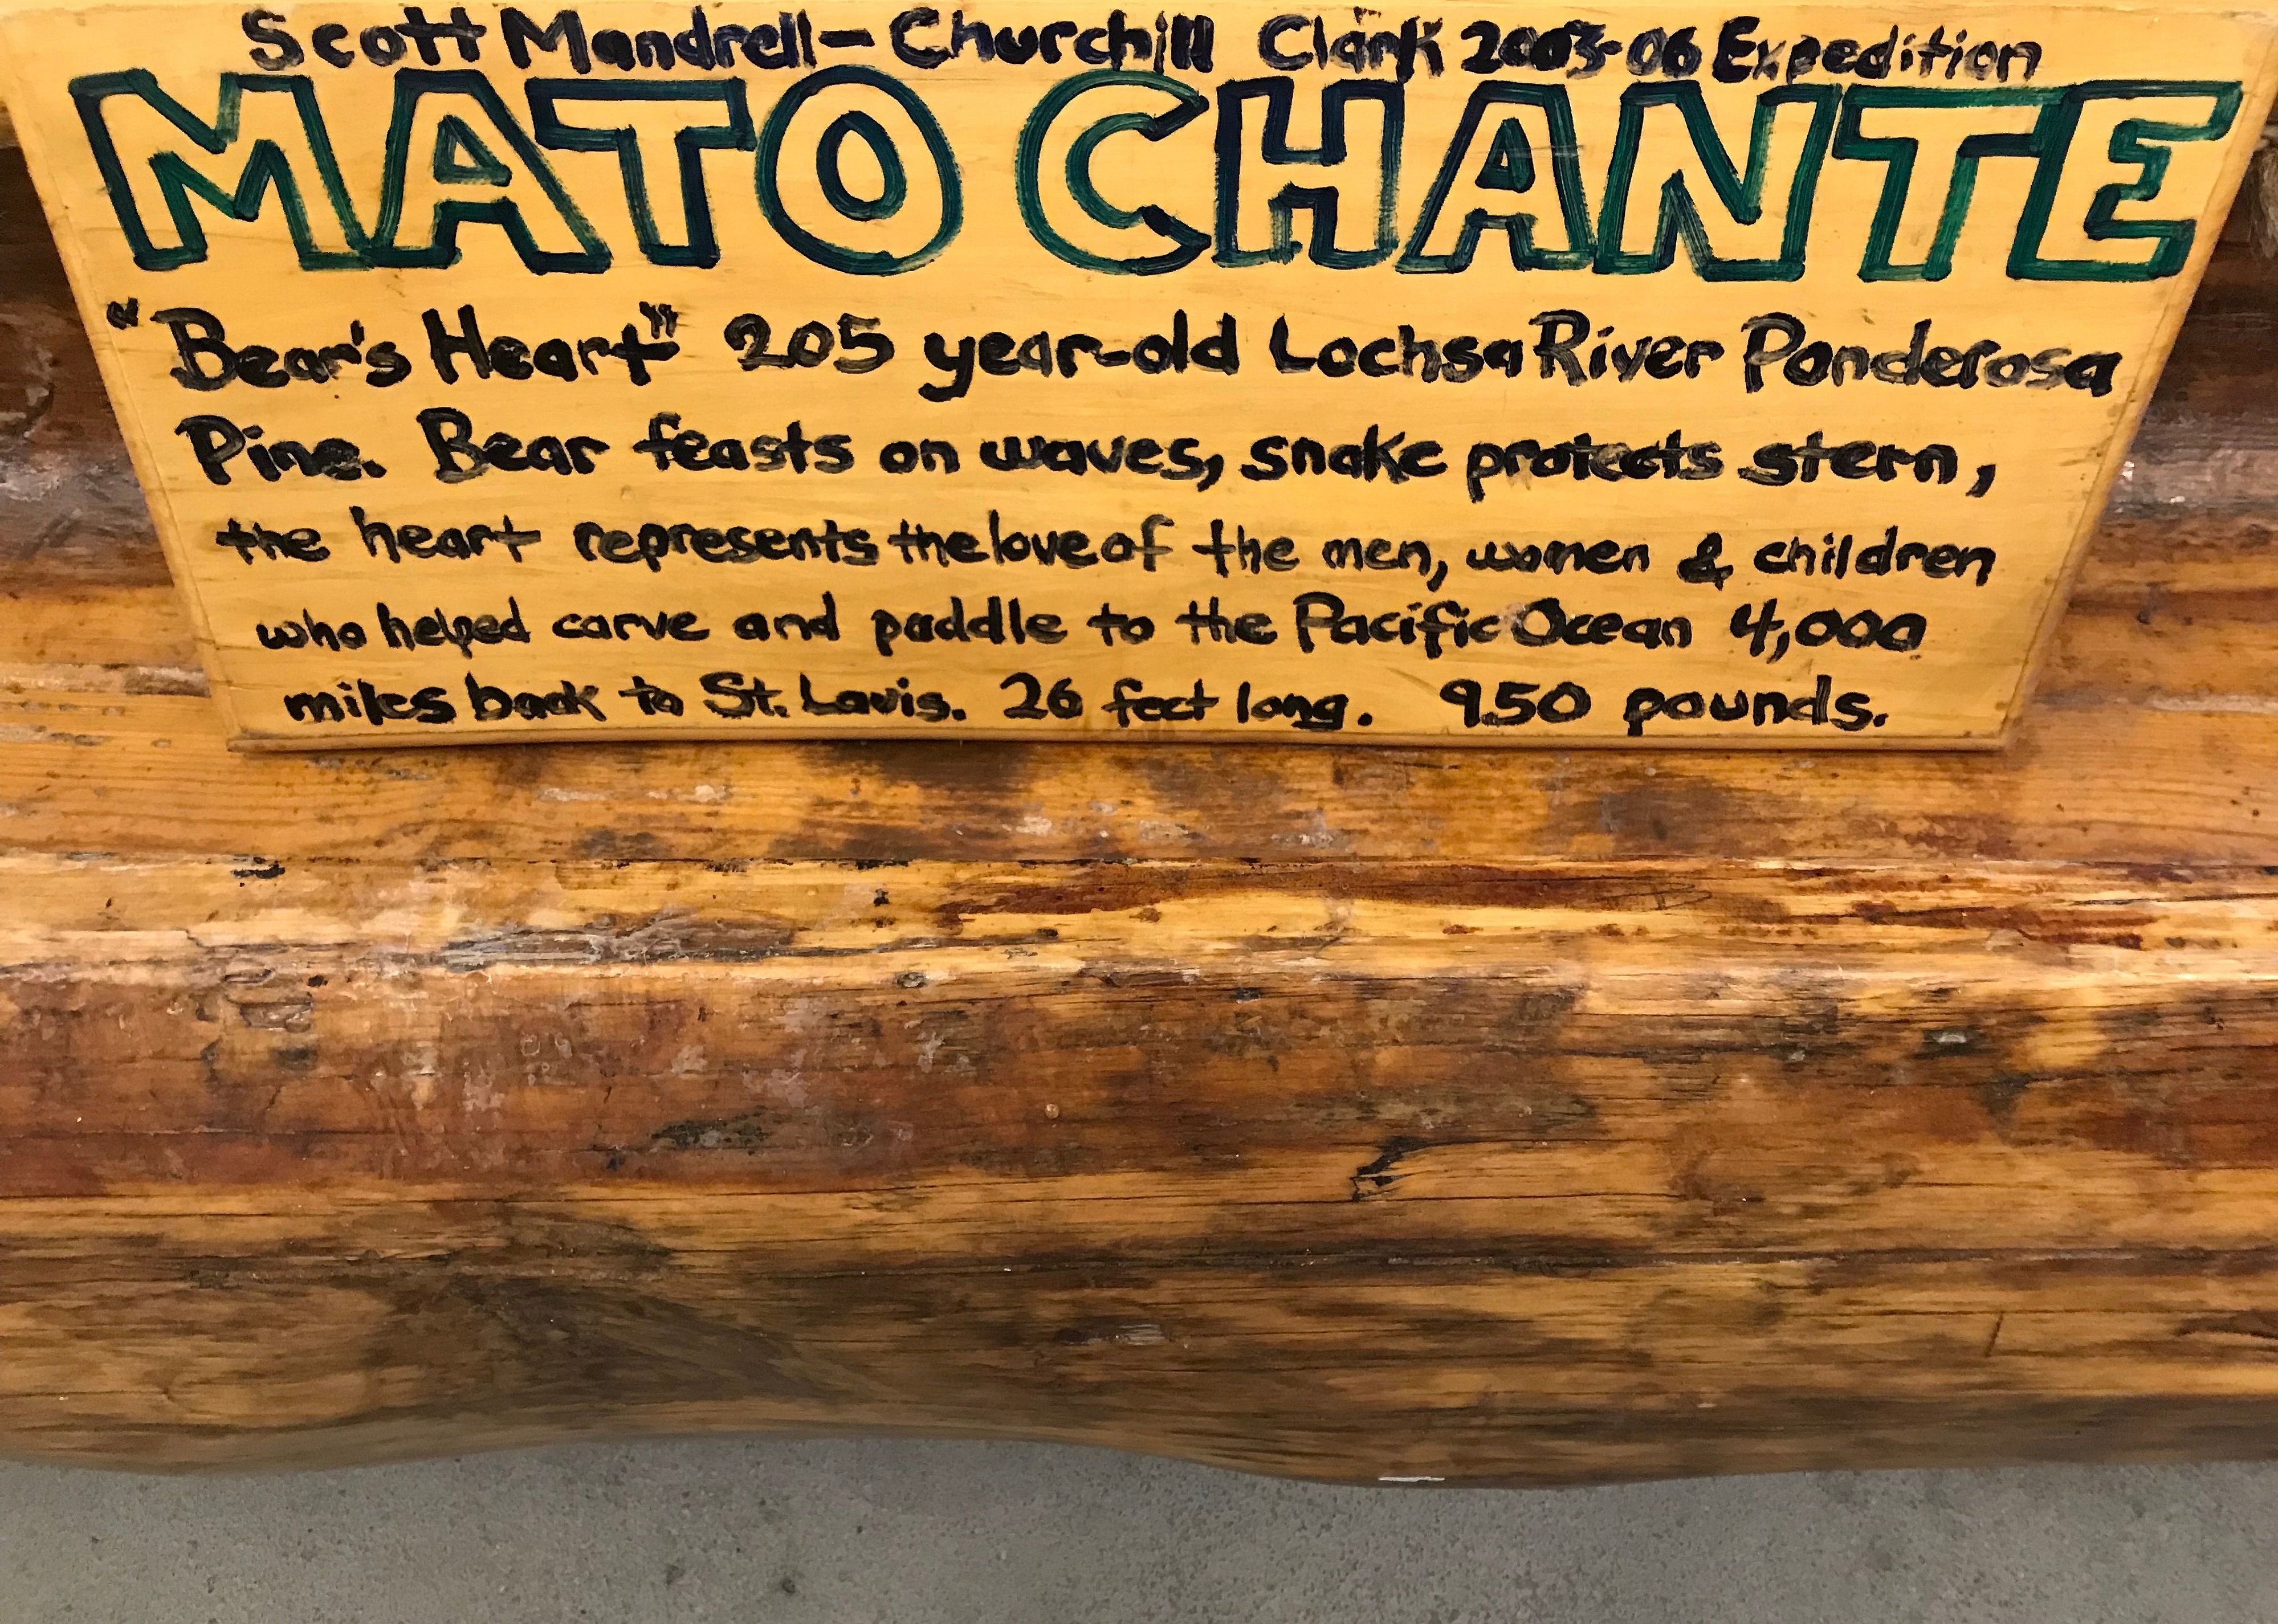 Scott Mandrell- Churchill Clark 2003-06 Expedition
MATO CHANTE
"Bear's Heart" 205 year-old Lochsa River Ponderosa
Pine. Bear feasts on waves, snake protects stern,
the heart represents the love of the men, women & children
who helped carve and paddle to the Pacific Ocean 4,000
miles back to St. Louis. 26 feet long. 950 pounds.